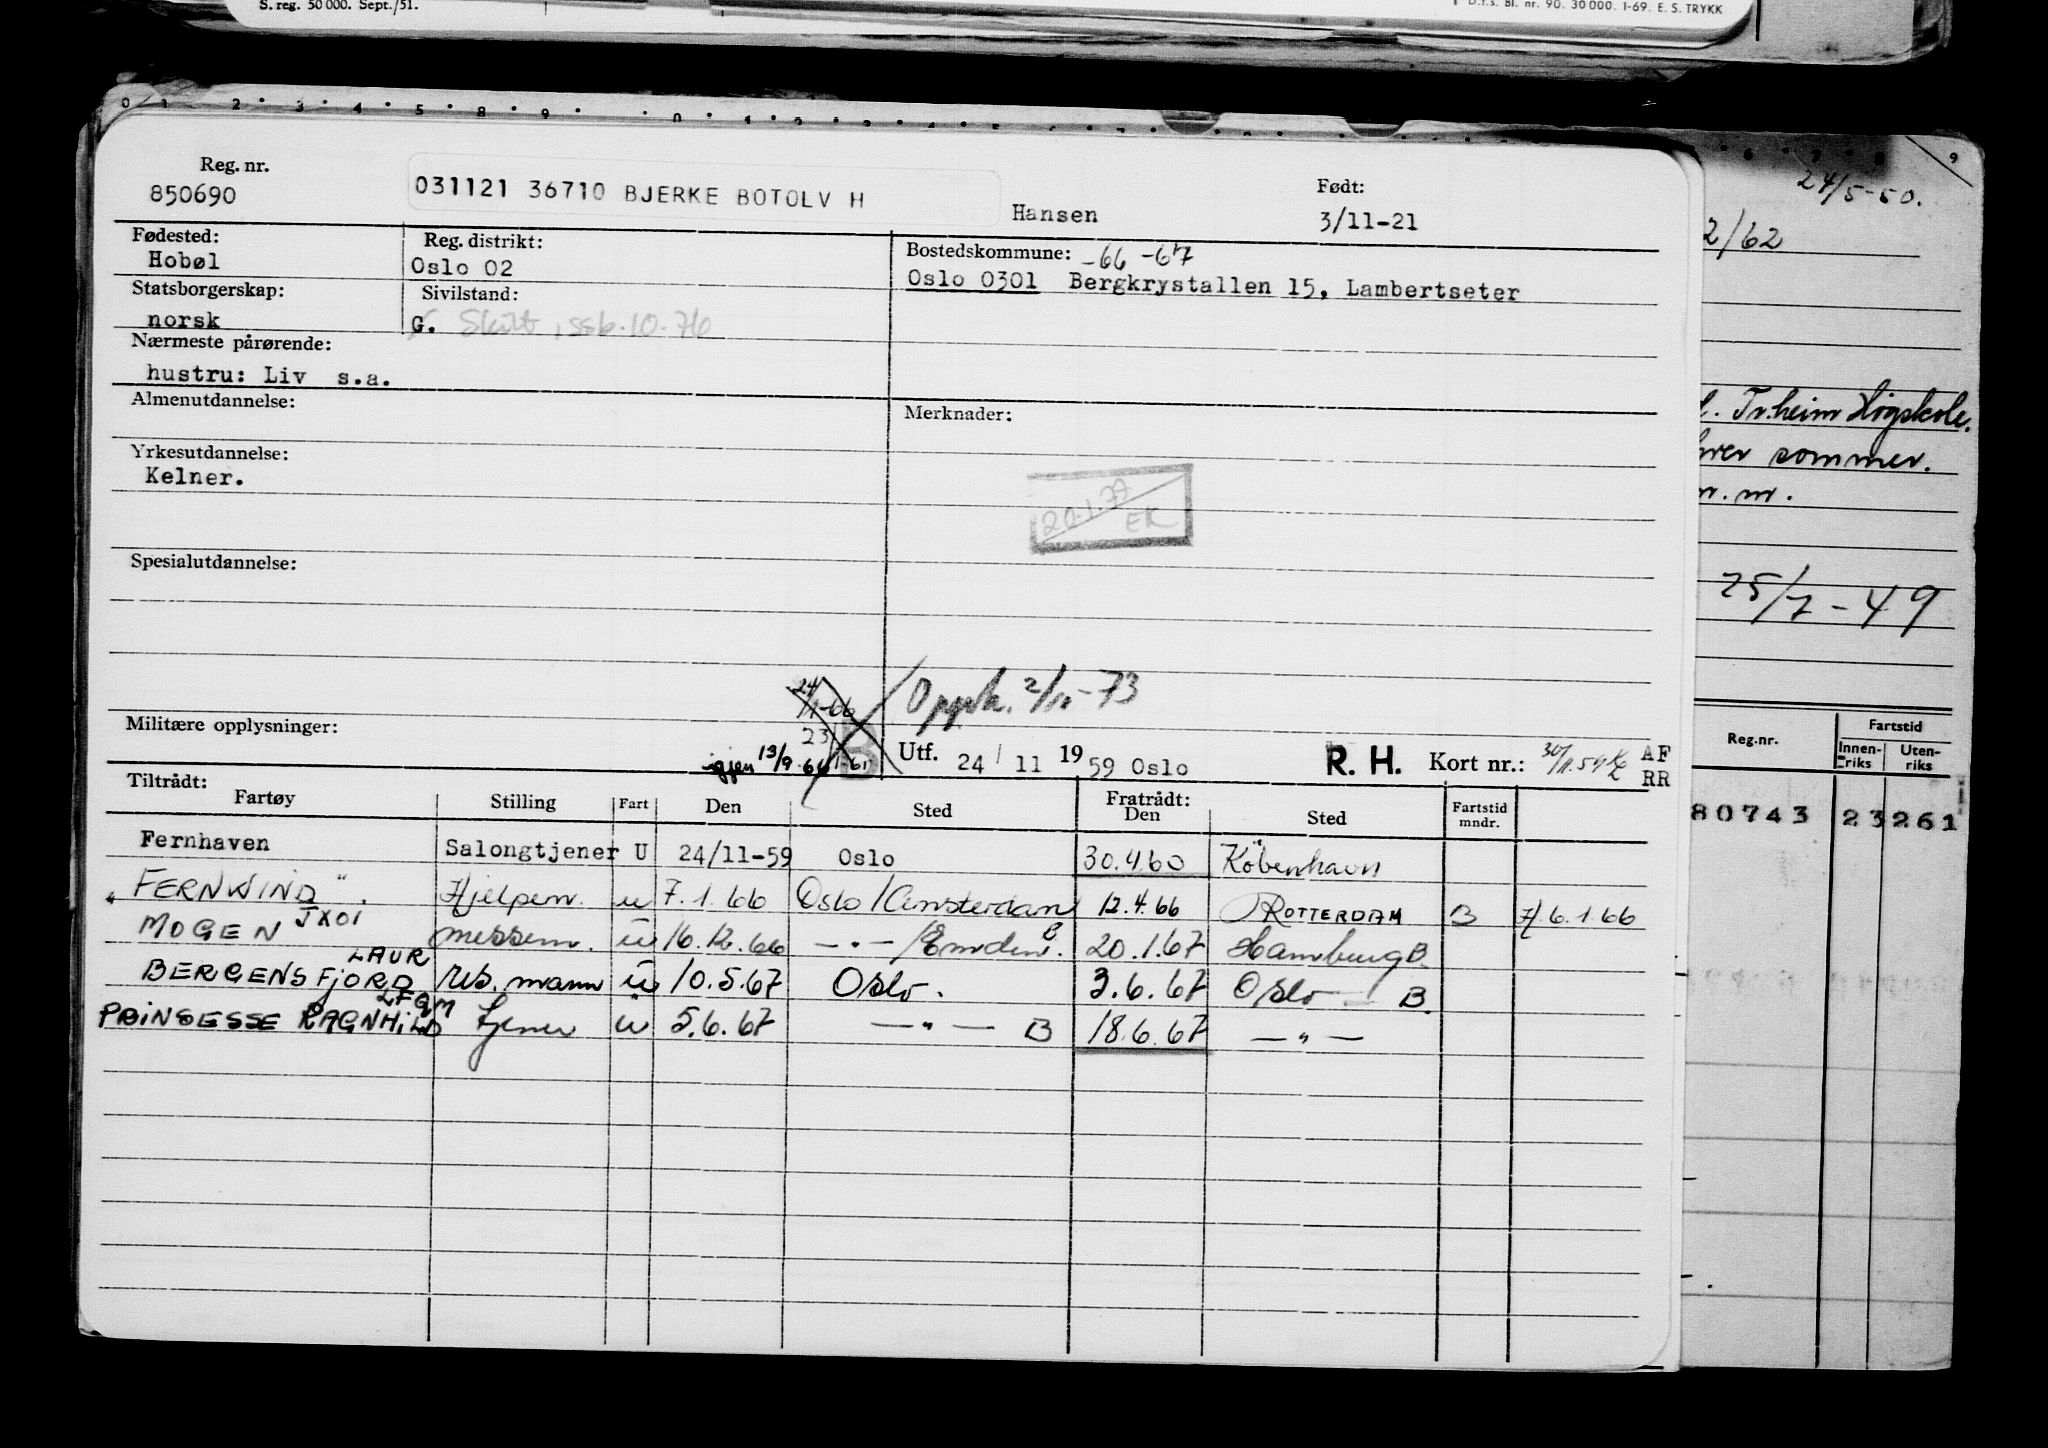 S. reg. 50 000. Sept./51.
D.f.s. Bl. nr. 90. 30 000. 1-69. E. S. TRYKK
24/5-50.
2/62
Tr.heim Høgskole.
sommer.
m.m.
25/7-49
Reg.nr.
Fartstid
Innen-
riks
Uten-
riks
80743 23 261
Reg. nr.
850690
031121 36710 BJERKE BOTOLV H
Hansen
Født:
3/11-21
Fødested:
Hobøl
Reg. distrikt:
Oslo 02
Bostedskommune: -66 -67
Oslo 0301 Bergkrystallen 15, Lambertseter
Statsborgerskap:
norsk
Sivilstand:
G. Skilt, ssb.10.76
Nærmeste pårørende:
hustru: Liv s.a.
Almenutdannelse:
Merknader:
Yrkesutdannelse:
Kelner.
20.1.77
EK
Spesialutdannelse:
24/1-66
23/1-61
igjen 13/9-66
Militære opplysninger:
Utf. 24/11 1959 Oslo
R. H. Kort nr.:
AF
RR
Tiltrådt:
Fartøy Stilling Fart Den Sted Fratrådt: Den Sted Fartstid mndr.
Fernhaven Salongtjener U 24/11-59 Oslo 30.4.60 København
"FERNWIND". Hjelpem. u 7.1.66 Oslo/Amsterdam 12.4.66 ROTTERDAM B 6.1.66
MOGEN JXOI messem. u 16.12.66 —"—/Emden. B 20.1.67 Hamburg B.
BERGENSFJORD LAUR res. mann u 10.5.67 Oslo. 3.6.67 Oslo — B.
PRINSESSE RAGNHILD LFGM tjener u 5.6.67 —"— B 18.6.67 —"—